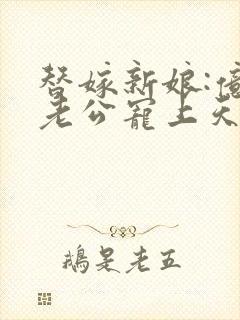 替嫁新娘:億
老公寵上天
鵝是老五